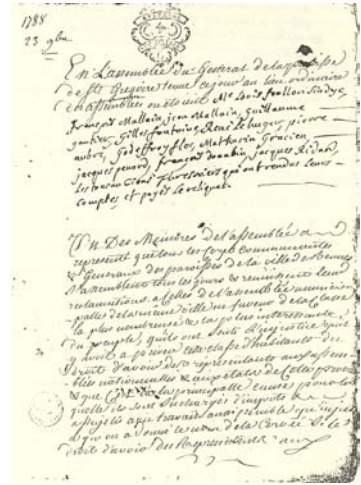 1788
23 9bre
En L'assemblée du General de la paroisse
de St Gregoire tenue ce jour au lieu ordinaire
des assemblées ou etoient Me Louis Sindyc
François Mallain, jean Mallain, Guillaume
gautier, Gilles fontaine, René Lebarger, pierre
aubré, Godeffroy flos, Mathurin Gracien
jacques penard, François jacques Ridard,
Les tous anciens thresoriers qui ont rendus Leurs
comptes et payés Le reliquat
Un Des Membres de l'assemblée a
representé que tous les corps communautés
& Generaux des paroisses de la ville de Rennes
s'assemblent tous les jours & reunissent leurs
reclamations a Celles de l'assemblée munici
palle de la meme ville en faveur de la Classe
la plus nombreuse & la plus interessante
du peuple, qu'ils ont
y avoit a cette classe d'habitants du
droit d'avoir des representants aux assem
blées nationnalles & aux etats de Cette province
& que C'est la principalle cause pour la
quelle ils sont surchargés d'impots &
assujetis a un travail aussi penible que
on a donné le nom de la Corvée Si le
droit d'avoir des Representants aux